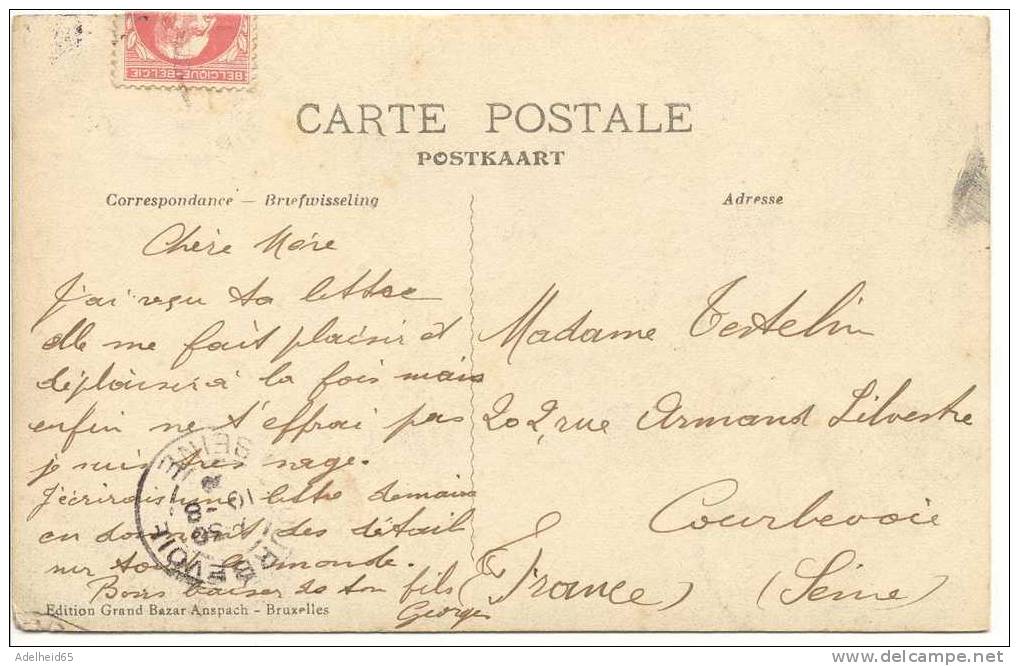 BELGIQUE-BELGIE
CARTE POSTALE
POSTKAART
Correspondance — Briefwisseling
Adresse
Chère Mère
J'ai reçu ta lettre
elle me fait plaisir et
déplaisir à la fois mais
enfin ne t'effrai pas
je suis très sage.
J'écrirais une lettre demain
en donnant des détail
sur tout le monde.
Bons baiser de ton fils
Georges
Madame Testelin
202, rue Armand Silvestre
Courbevoie
(France) (Seine)
COURBEVOIE SEINE
Edition Grand Bazar Anspach - Bruxelles
Adelheid65
delcampe.net